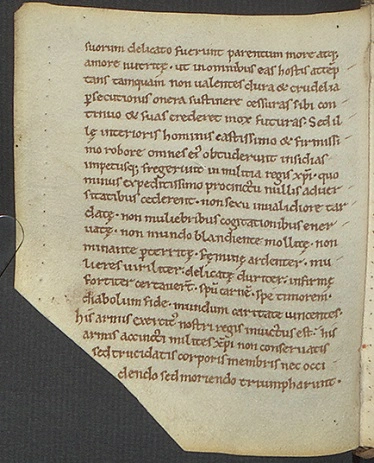 suorum delicato fuerunt parentum more atq;
amore nutritę. ut in omnibus eas hostis attep
tans tamquam non ualentes dura & crudelia
psecutionis onera sustinere cessuras sibi con
tinuo & suas crederet mox futuras. Sed il
lę interioris hominis castissimo & firmissi
mo robore omnes ei' obtuderunt insidias
impetusq; fregerunt in militia regis xpi. quo
minus expeditissimo procinctu nullis aduer
sitatibus cederent. non sexu inualidiore tar
datę. non muliebribus cogitationibus ener
uatę. non mundo blandiente mollitę. non
minante pterritę. feminę ardenter. mu
lieres uiriliter. delicatę duriter. infirmę
fortiter certauert. spu carne. spe timorem.
diabolum fide. mundum caritate uincentes.
his armis exercit' nostri regis inuictus est. his
armis accincti milites xpi non conseruatis
sed trucidatis corporis membris nec occi
dendo sed moriendo triumpharunt.